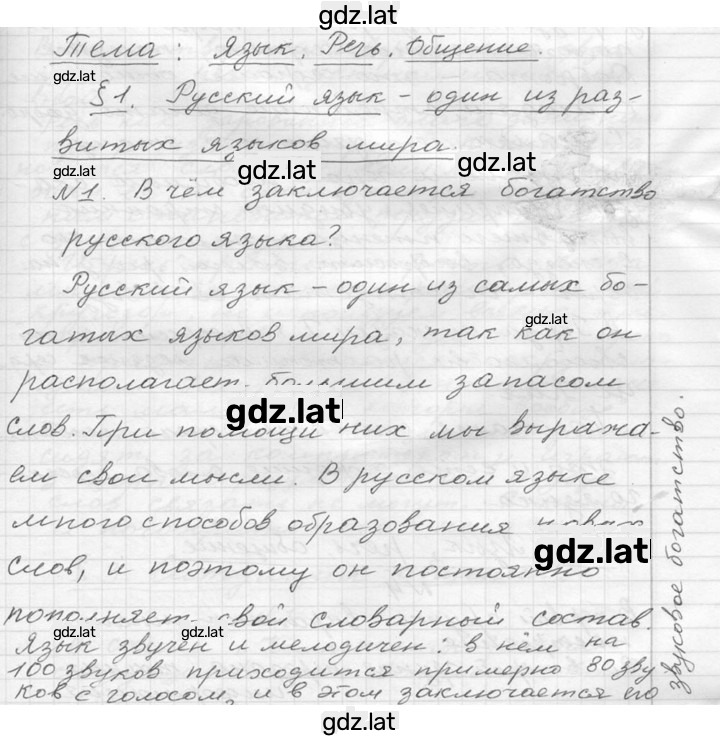 gdz.lat
Тема: Язык. Речь. Общение.
gdz.lat
§1. Русский язык - один из раз-
витых языков мира.
gdz.lat
№1. В чём заключается богатство
русского языка?
Русский язык - один из самых бо-
gdz.lat
гатых языков мира, так как он
располагает большим запасом
gdz.lat
слов. При помощи них мы выража-
ем свои мысли. В русском языке
много способов образования новых
gdz.lat
слов, и поэтому он постоянно
пополняет свой словарный состав.
gdz.lat gdz.lat
Язык звучен и мелодичен: в нём на
100 звуков приходится примерно 80 зву
ков с голосом, и в этом заключается его
звуковое богатство.
gdz.lat